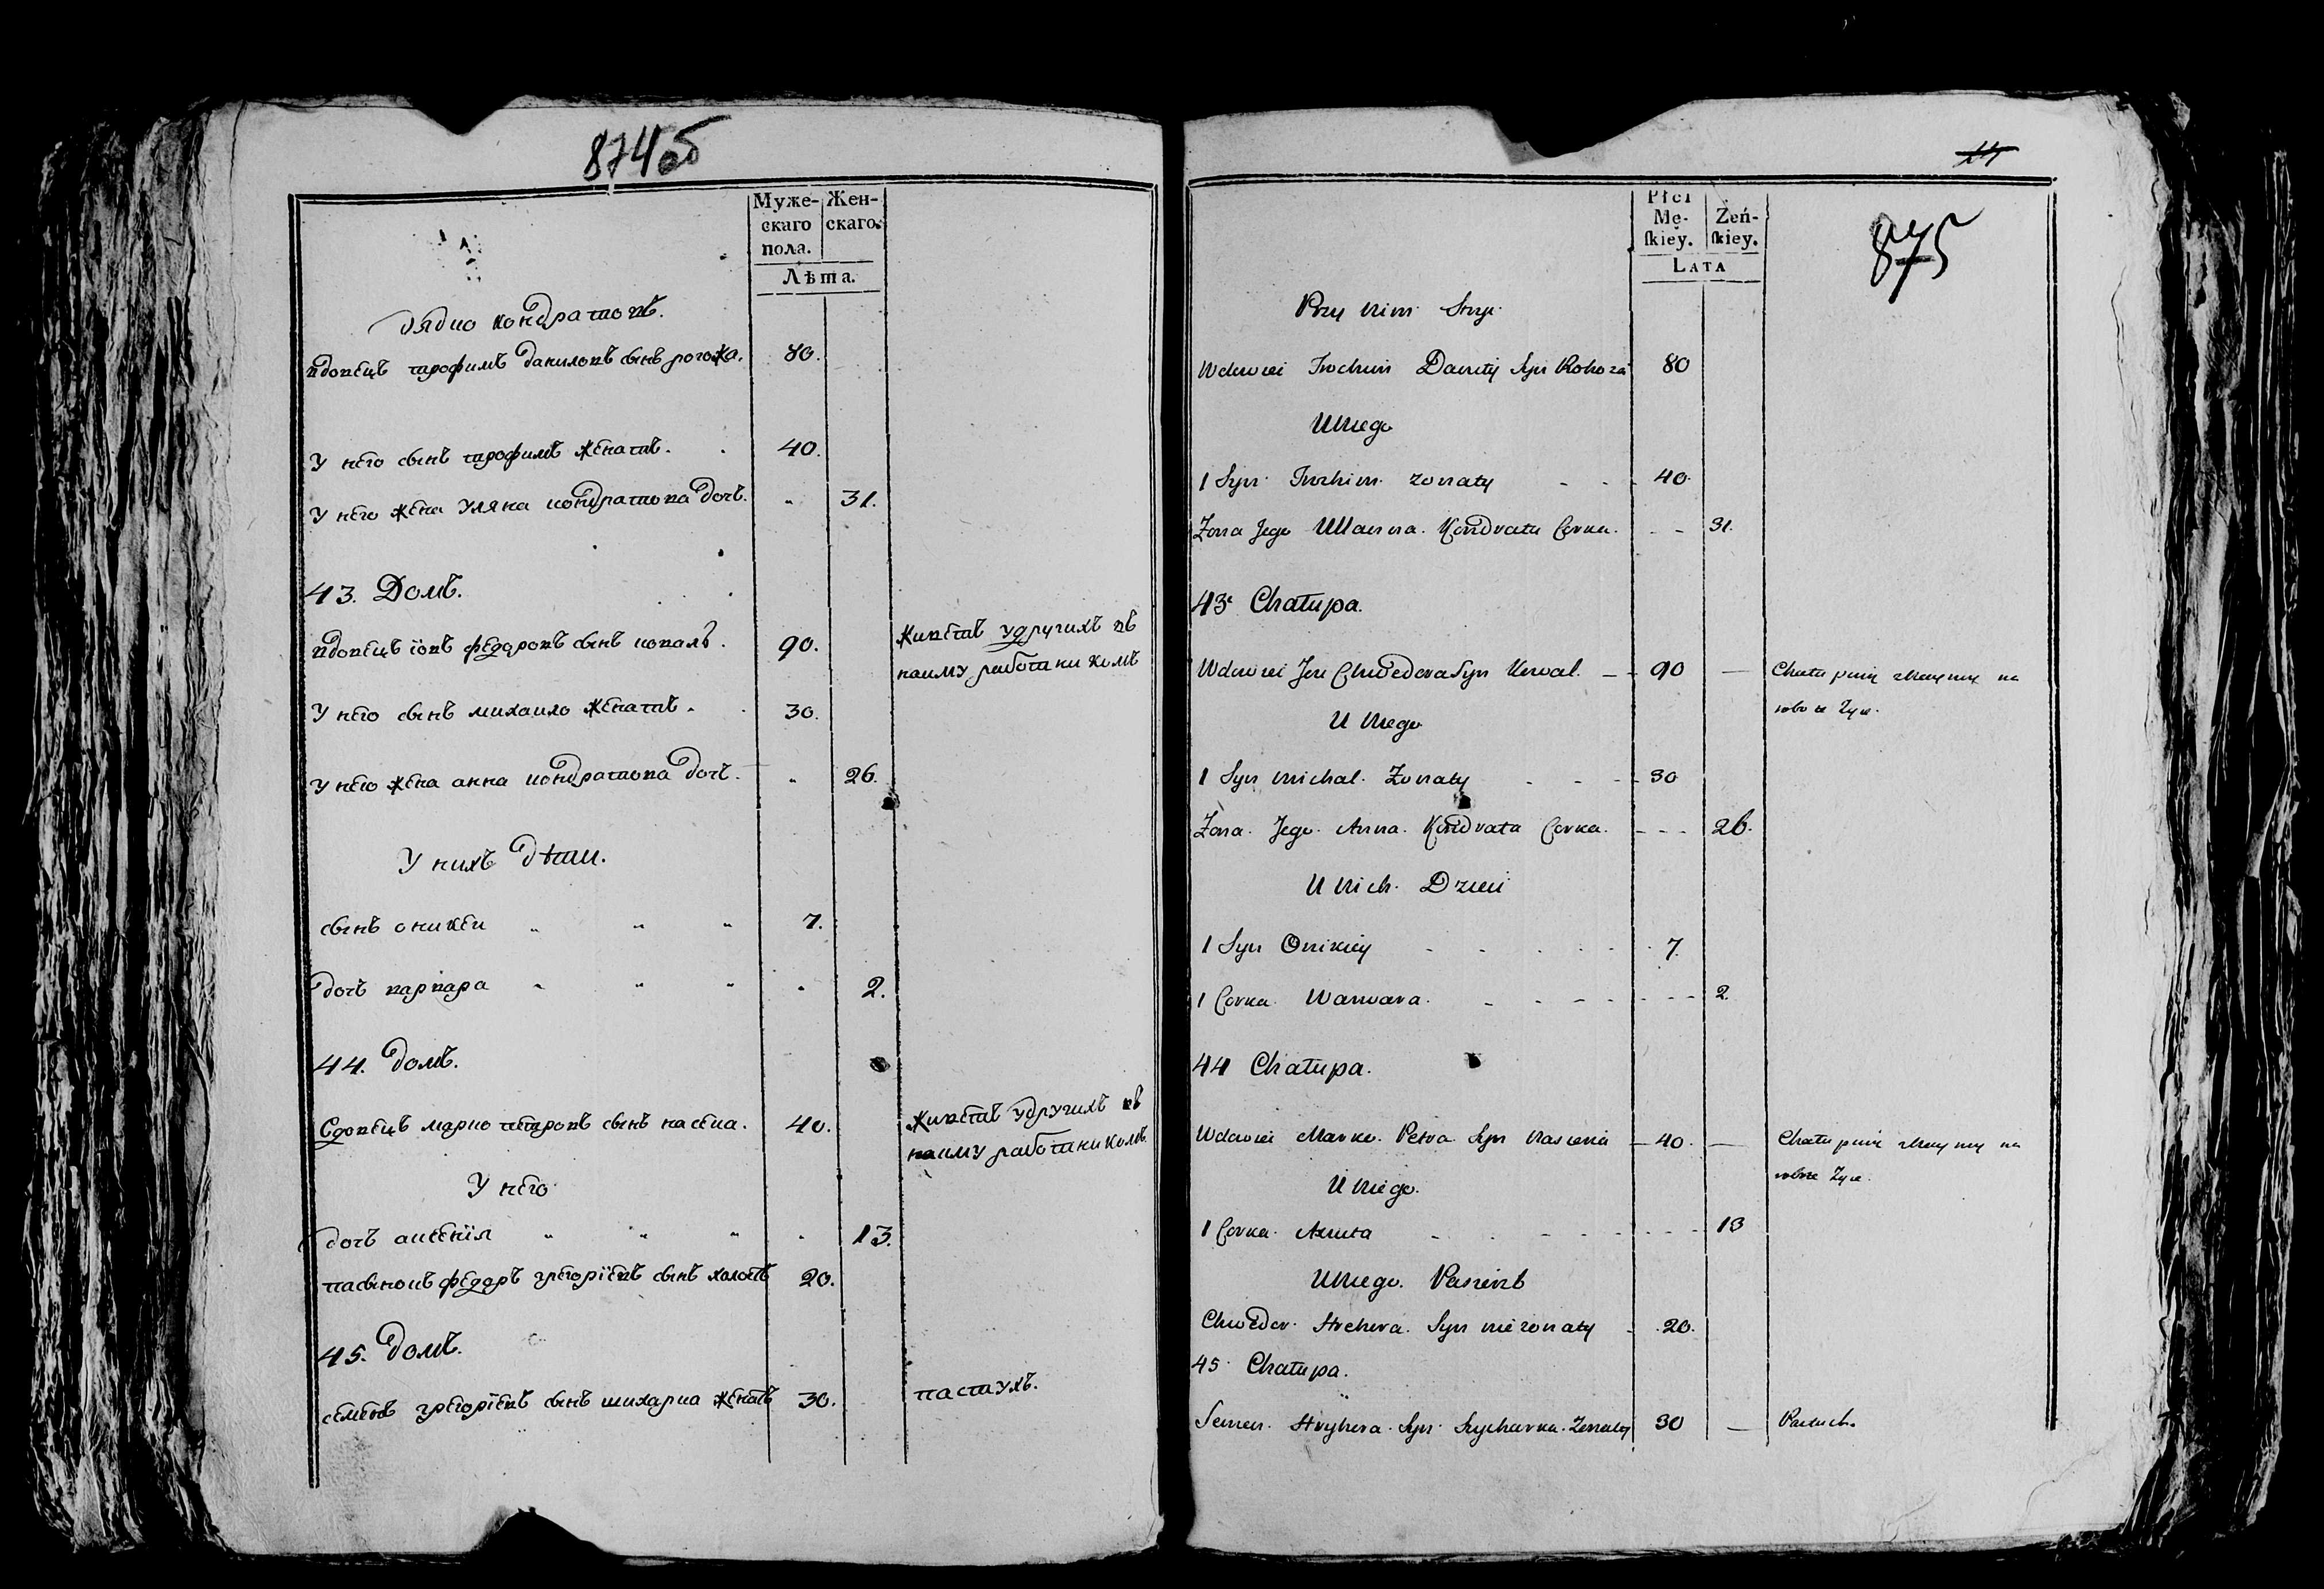 874об
Муже-
скаго
пола.
Жен-
скаго.
Лѣта.
дядко кондратовъ.
вдовецъ трофимъ даниловъ сынъ рогожа. 80.
У него сынъ трофимъ женатъ. 40.
У него жена Уляна кондратова дочъ. 31.
43. Домъ.
вдовецъ іовъ федоровъ сынъ коваль. 90. живетъ у другихъ въ
найму работникомъ
У него сынъ михаило женатъ. 30.
У него жена анна кондратова дочъ. 26.
У нихъ дѣти.
сынъ оникеи 7.
дочъ варвара 2.
44. домъ.
вдовецъ марко петровъ сынъ 40. живетъ у другихъ въ
найму работникомъ.
У него
дочъ аксенія 13.
пасынокъ федоръ григоріевъ сынъ холостъ 20.
45. домъ.
семенъ григоріевъ сынъ шихарка женатъ 30. пастухъ.
Płci
Mę-
ſkiéy.
Żeń-
ſkiey.
LATA
875
Przy nim Stryi
Wdowiec Trochim Syn Rohoza 80
U Niego
1 Syn Trochim zonaty 40
Zona Jego Ullanna Kondrata Corka. 31.
43 Chatupa.
Wdowiec Jow Chwedora Syn Kowal. 90 Chatupnik
U Niego
1 Syn Michal. Zonaty 30
Zona Jego Anna Kondrata Corka. 26.
U Nich Dzieci
1 Syn Onikiey 7.
1 Corka Warwara. 2.
44 Chatupa.
Wdowiec Marko Petra Syn 40. Chatupnik
U Niego
1 Corka 13
U Niego Pasierzb
Chwedor Syn niezonaty 20.
45 Chatupa.
Semen Hryhora Syn Szycharka Zonaty 30 Pastuch.